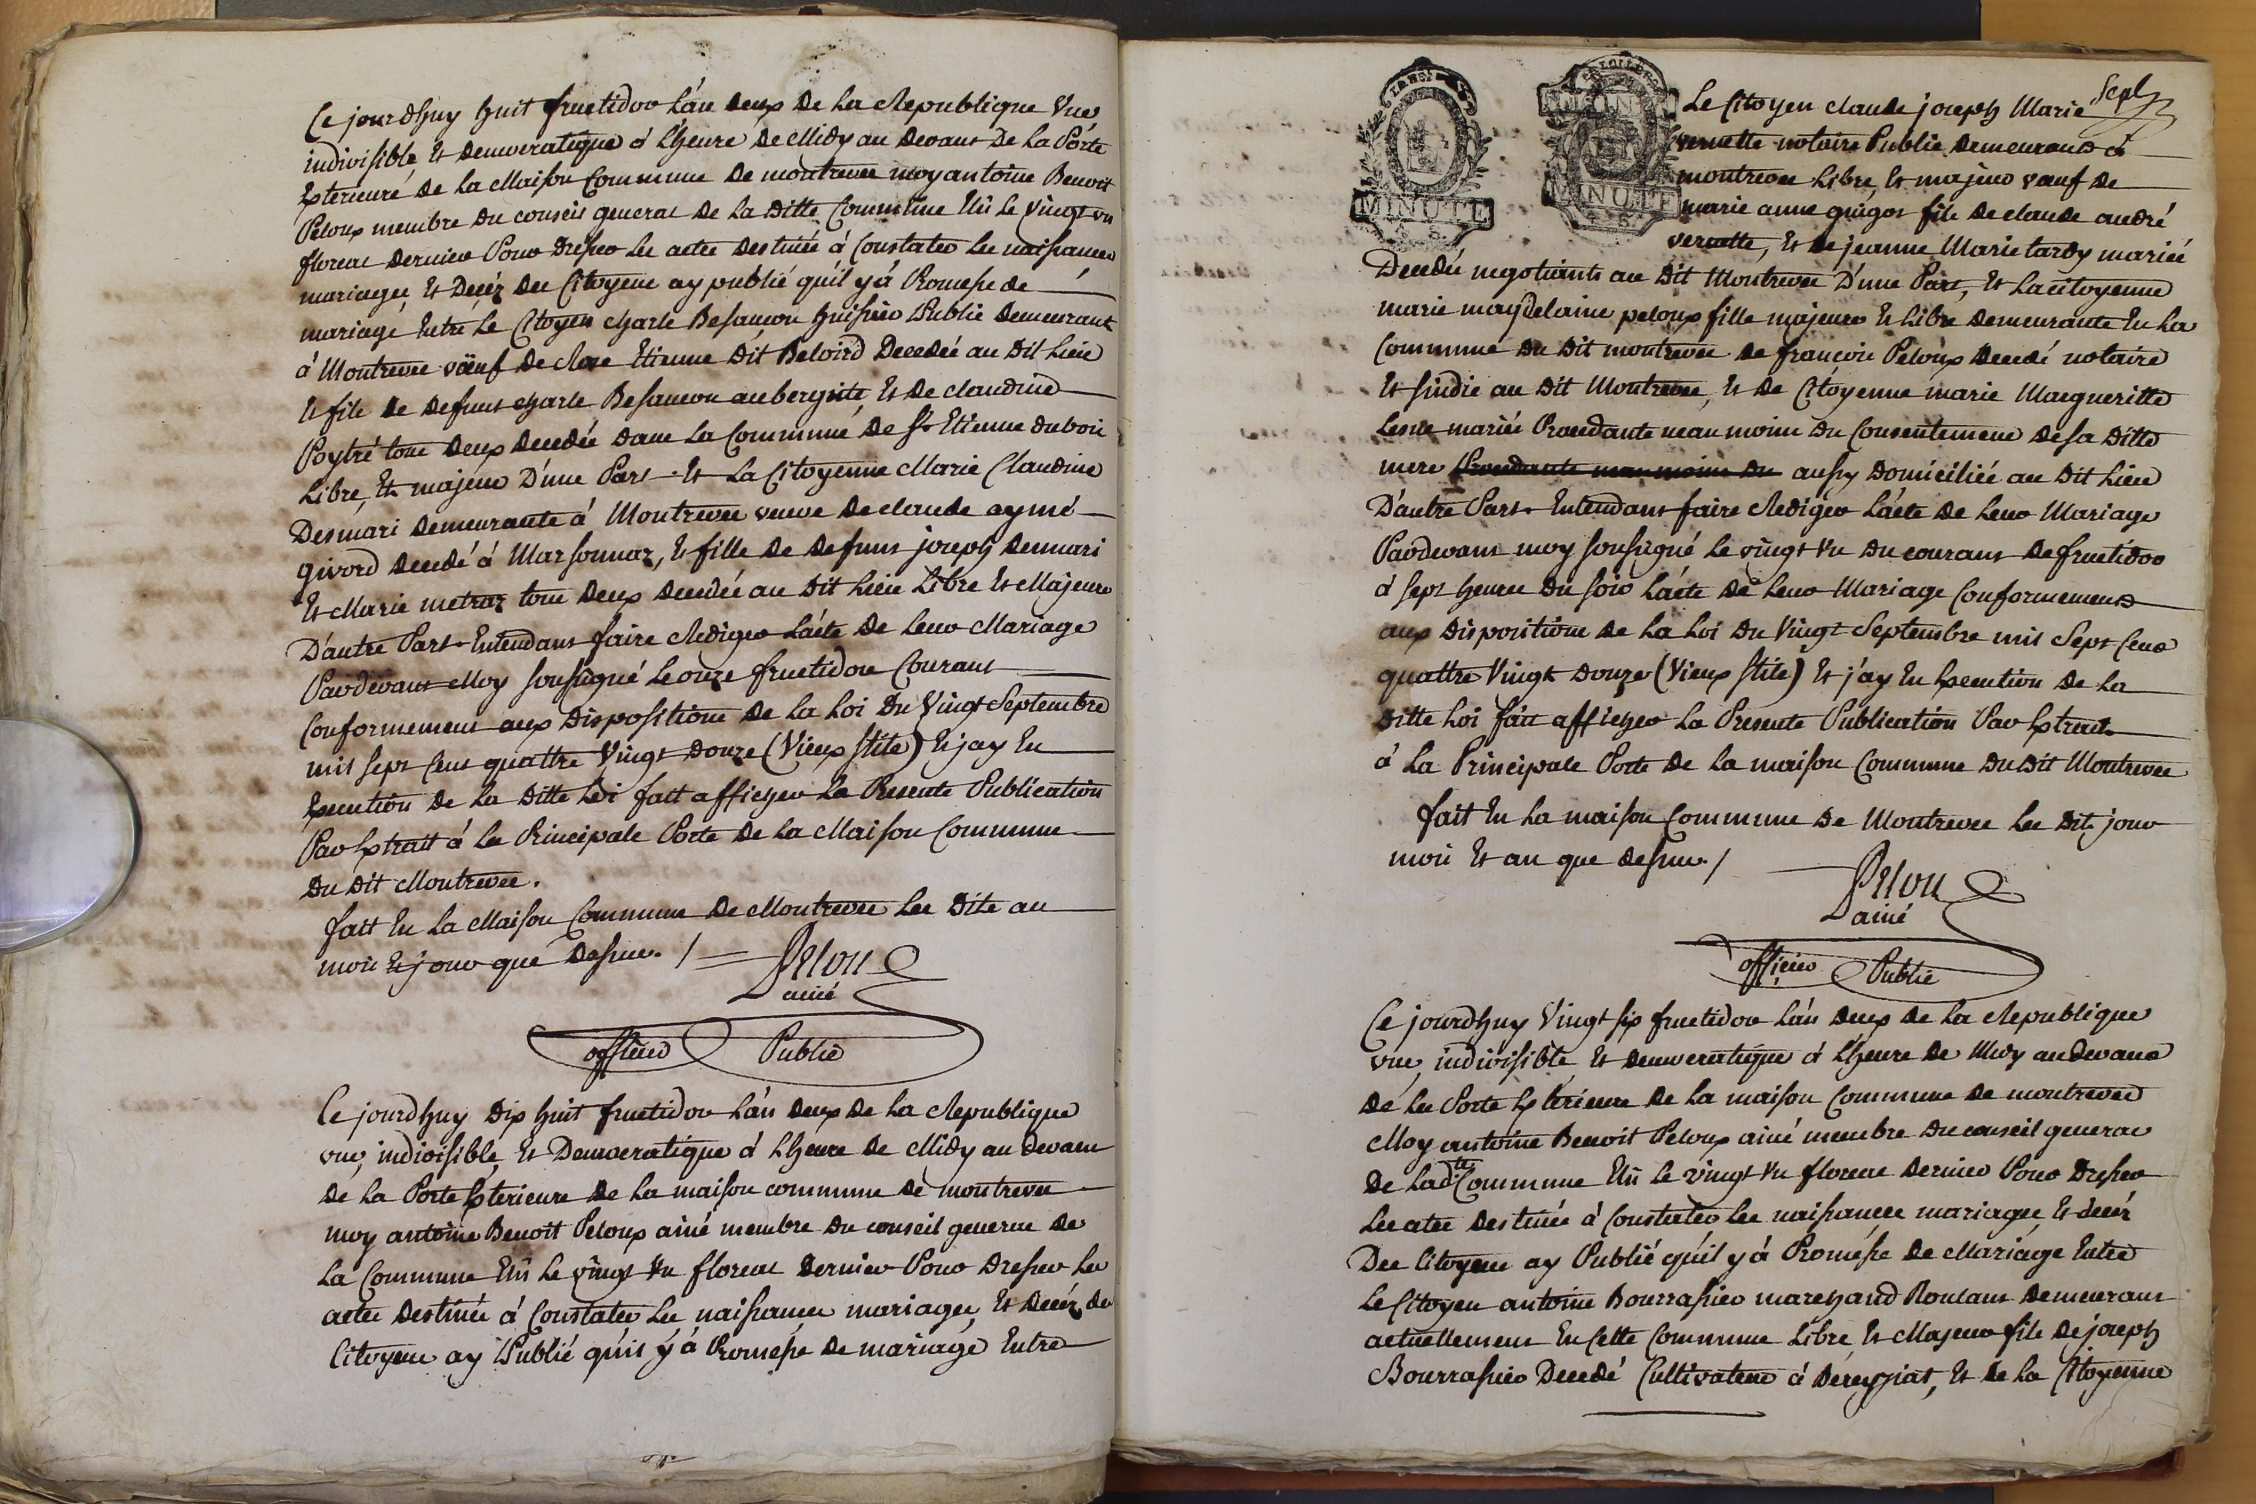 Ce jourdhuy huit fructidor L'an deux de La Republique Une
indivisible Et democratique à L'heure de Midy au devant De La Porte
Exterieure de La Maison Commune de montrevee moy antoine Benoit
Peloux membre du conseil general de La ditte Commune Elû Le vingt un
floreal dernier Pour dresser Les actes destinés à Constater Les naissances
mariages Et Decéz des Citoyens ay publié qu'il y á Promesse de
mariage Entre Le Citoyen charle Besancon huissier Public demeurant
à Montrevee vœuf de Etienne Dit Beloird Decedée au Dit Lieu
Et fils de defunt charle Besancon aubergiste, Et de claudine
Poytré tous deux decedés dans La Commune de St Etienne dubois
Libre, Et majeur D'une Part Et La Citoyenne Marie Claudine
Desmari demeurante à Montrevee veuve de claude aymé
givord decedé à Marsonnaz, Et fille de defunt joseph desmari
Et Marie metraz tous deux decedés au dit Lieu Libre Et Majeure
D'autre Part Entendans faire Rediger L'acte de Leur Mariage
Pardevant Moy soussigné Le onze fructidor Courant
Conformement aux Dispositions de La Loi du Vingt Septembre
mil sept Cent quattre Vingt douze (Vieux stile) Et jay En
Execution de La ditte Loi fait afficher La Presente Publication
Par Extrait à La Principale Porte de La Maison Commune
Du dit Montrevee.
fait En La Maison Commune de Montrevee Les Dits an
mois Et jour que dessus. /
Pelou
ainé
officier Public
Ce jourdhuy Dix huit fructidor L'an deux de La Republique
une, indivisible, Et Democratique à Lheure de Midy au devant
de La Porte Exterieure de La maison commune de montrevee
moy antoine Benoit Peloux ainé membre du conseil general de
La Commune Elû Le vingt un floreal dernier Pour Dresser Les
actes destinés à Constater Les naissances mariages, Et Decéz des
Citoyens ay Publié qu'il y à Promesse de mariage Entre
Sept
Le Citoyen claude joseph Marie
vernette notaire Public demeurant à
montrevee Libre, Et majeur vœuf de
marie anne guigot fils de claude andré
vernette, Et de jeanne Marie tardy mariés
Decedés negotiants au Dit Montrevee D'une Part, Et La citoyenne
marie magdelaine peloux fille majeure Et Libre demeurante En La
Commune du dit montrevee de francois Peloux decedé notaire
Et sindic au dit Montrevee, Et de Citoyenne marie Margueritte
Lesne mariés Procedante neanmoins du Consentement de sa Ditte
mere Procedante neanmoins du aussy Domiciliée au dit Lieu
D'autre Part Entendans faire Rediger L'acte de Leur Mariage
Pardevant moy soussigné Le vingt un du courant de fructidor
à Sept heures du soir L'acte de Leur Mariage Conformement
aux Dispositions de La Loi du Vingt Septembre mil Sept Cent
quattre Vingt douze (Vieux stile) Et j'ay En Execution de La
ditte Loi fait afficher La Presente Publication Par Extrait
à La Principale Porte de La maison Commune du dit Montrevee
fait En La maison Commune de Montrevee Les dits jour
mois Et an que dessus. /
Pelou
ainé
officier Public
Ce jourdhuy Vingt six fructidor L'an deux de La Republique
une, indivisible Et democratique à L'heure de Midy audevant
dé La Porte Exterieure de La maison Commune de montrevee
Moy antoine Benoit Peloux ainé membre du conseil general
de Ladte Commune Elû Le vingt un floreal dernier Pour dresser
Les actes destinés à Constater Les naissances mariages Et décéz
Des Citoyens ay Publié qu'il y à Promesse de Mariage Entre
Le Citoyen antoine Bourrassier marchand Roulant demeurant
actuellement En Cette Commune Libre Et Majeur fils de joseph
Bourrassier Decedé Cultivateur à dereyziat, Et de La Citoyenne
MINUTE
MINUTE